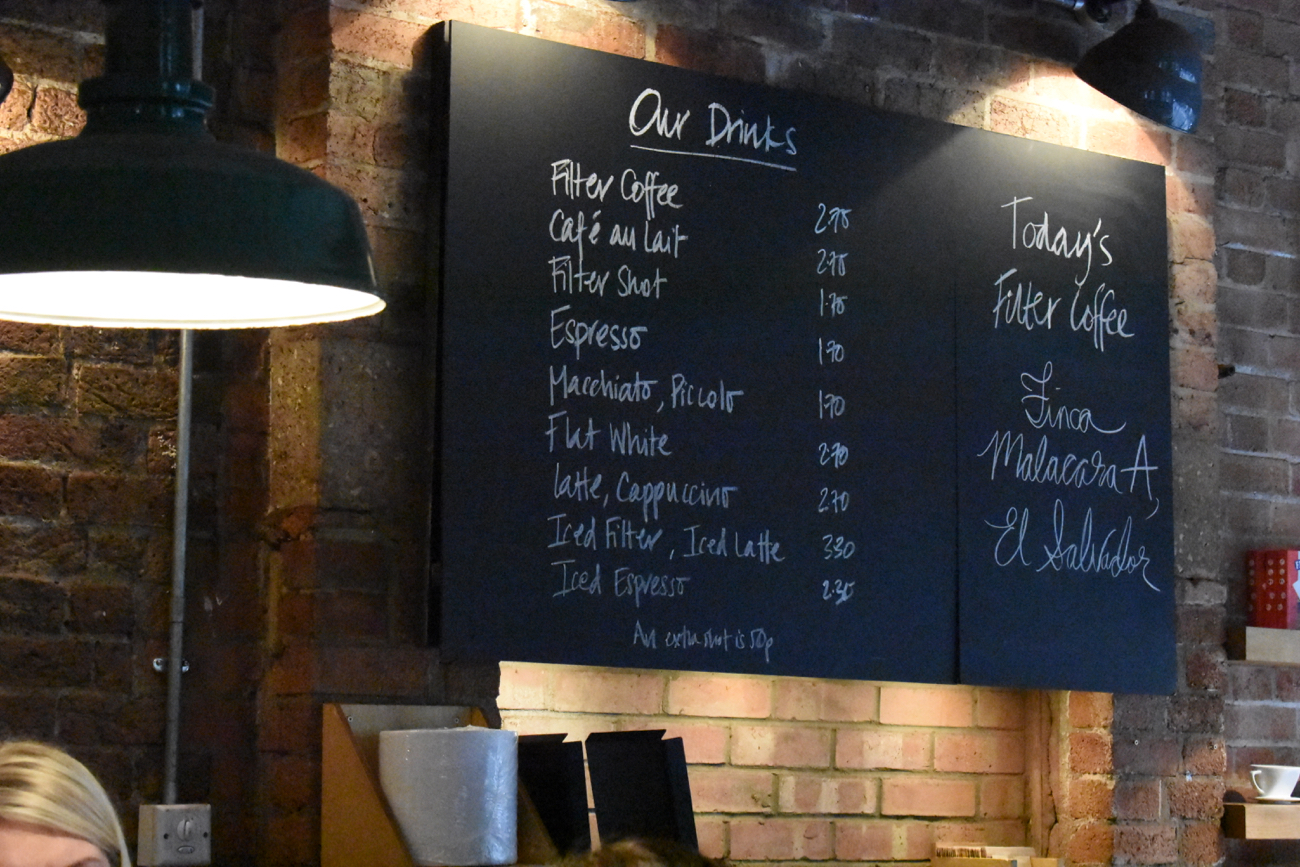 Our Drinks
Filter Coffee 2.70
Café au Lait 2.70
Filter Shot 1.70
Espresso 1.70
Macchiato, Piccolo 1.70
Flat White 2.70
Latte, Cappuccino 2.70
Iced Filter, Iced Latte 3.30
Iced Espresso 2.30
An extra shot is 50p
Today's
Filter Coffee
Finca
Malacara A,
El Salvador